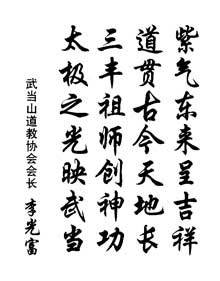 紫气东来呈吉祥
道贯古今天地长
三丰祖师创神功
太极之光映武当
武当山道教协会会长 李光富